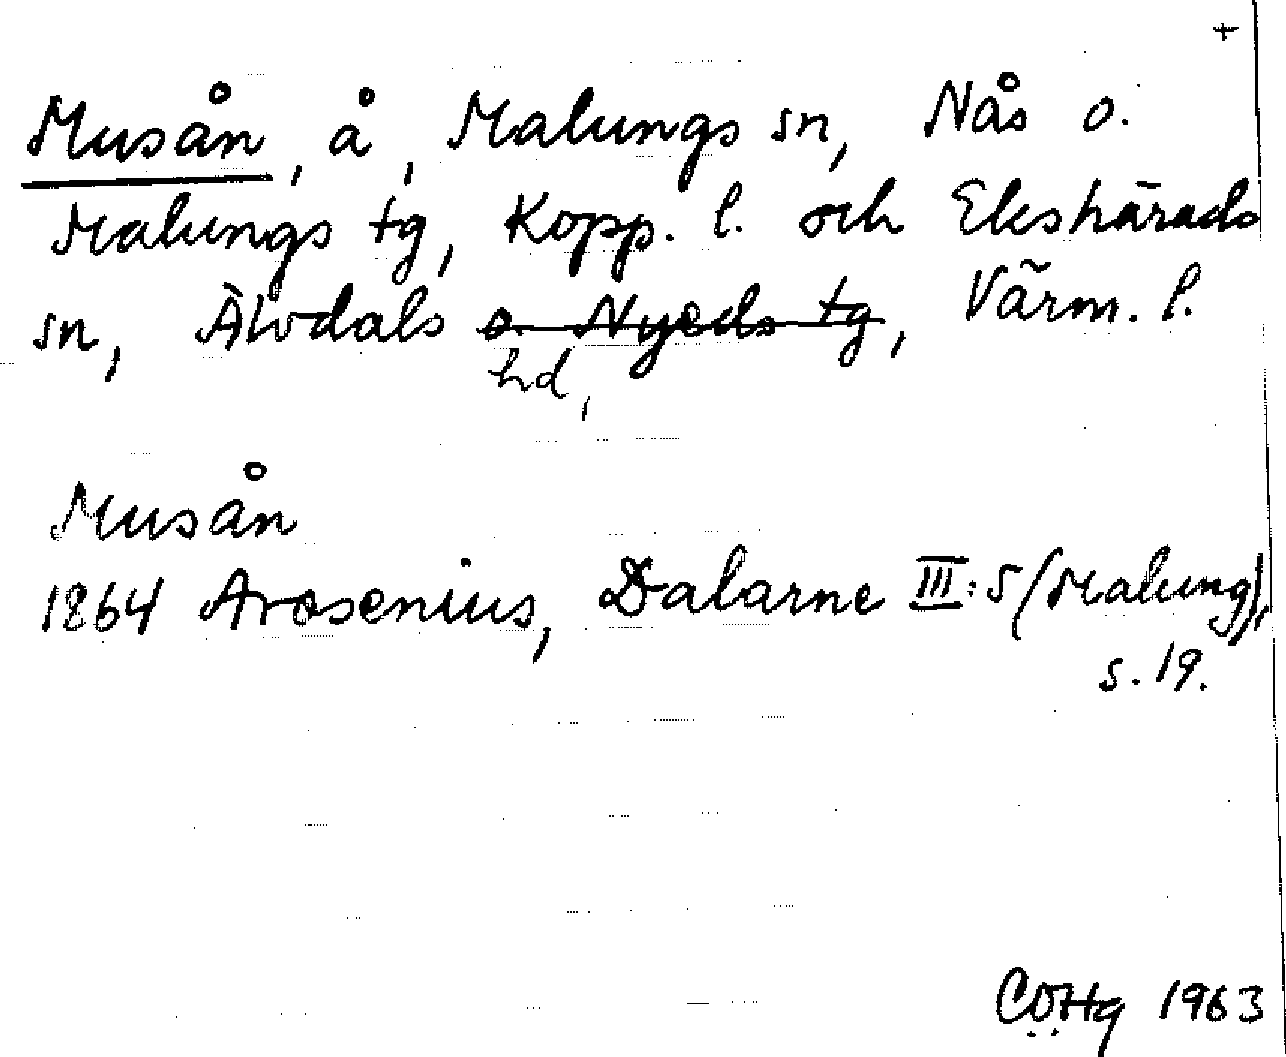 +
Musån, å, Malungs sn, Nås o.
Malungs tg, Kopp. l. och Ekshärads
sn, Älvdals o. Nyeds tg, Värm. l.
hd,
Musån
1864 Arosenius, Dalarne III:5 (Malung),
s. 19.
CÖHg 1963